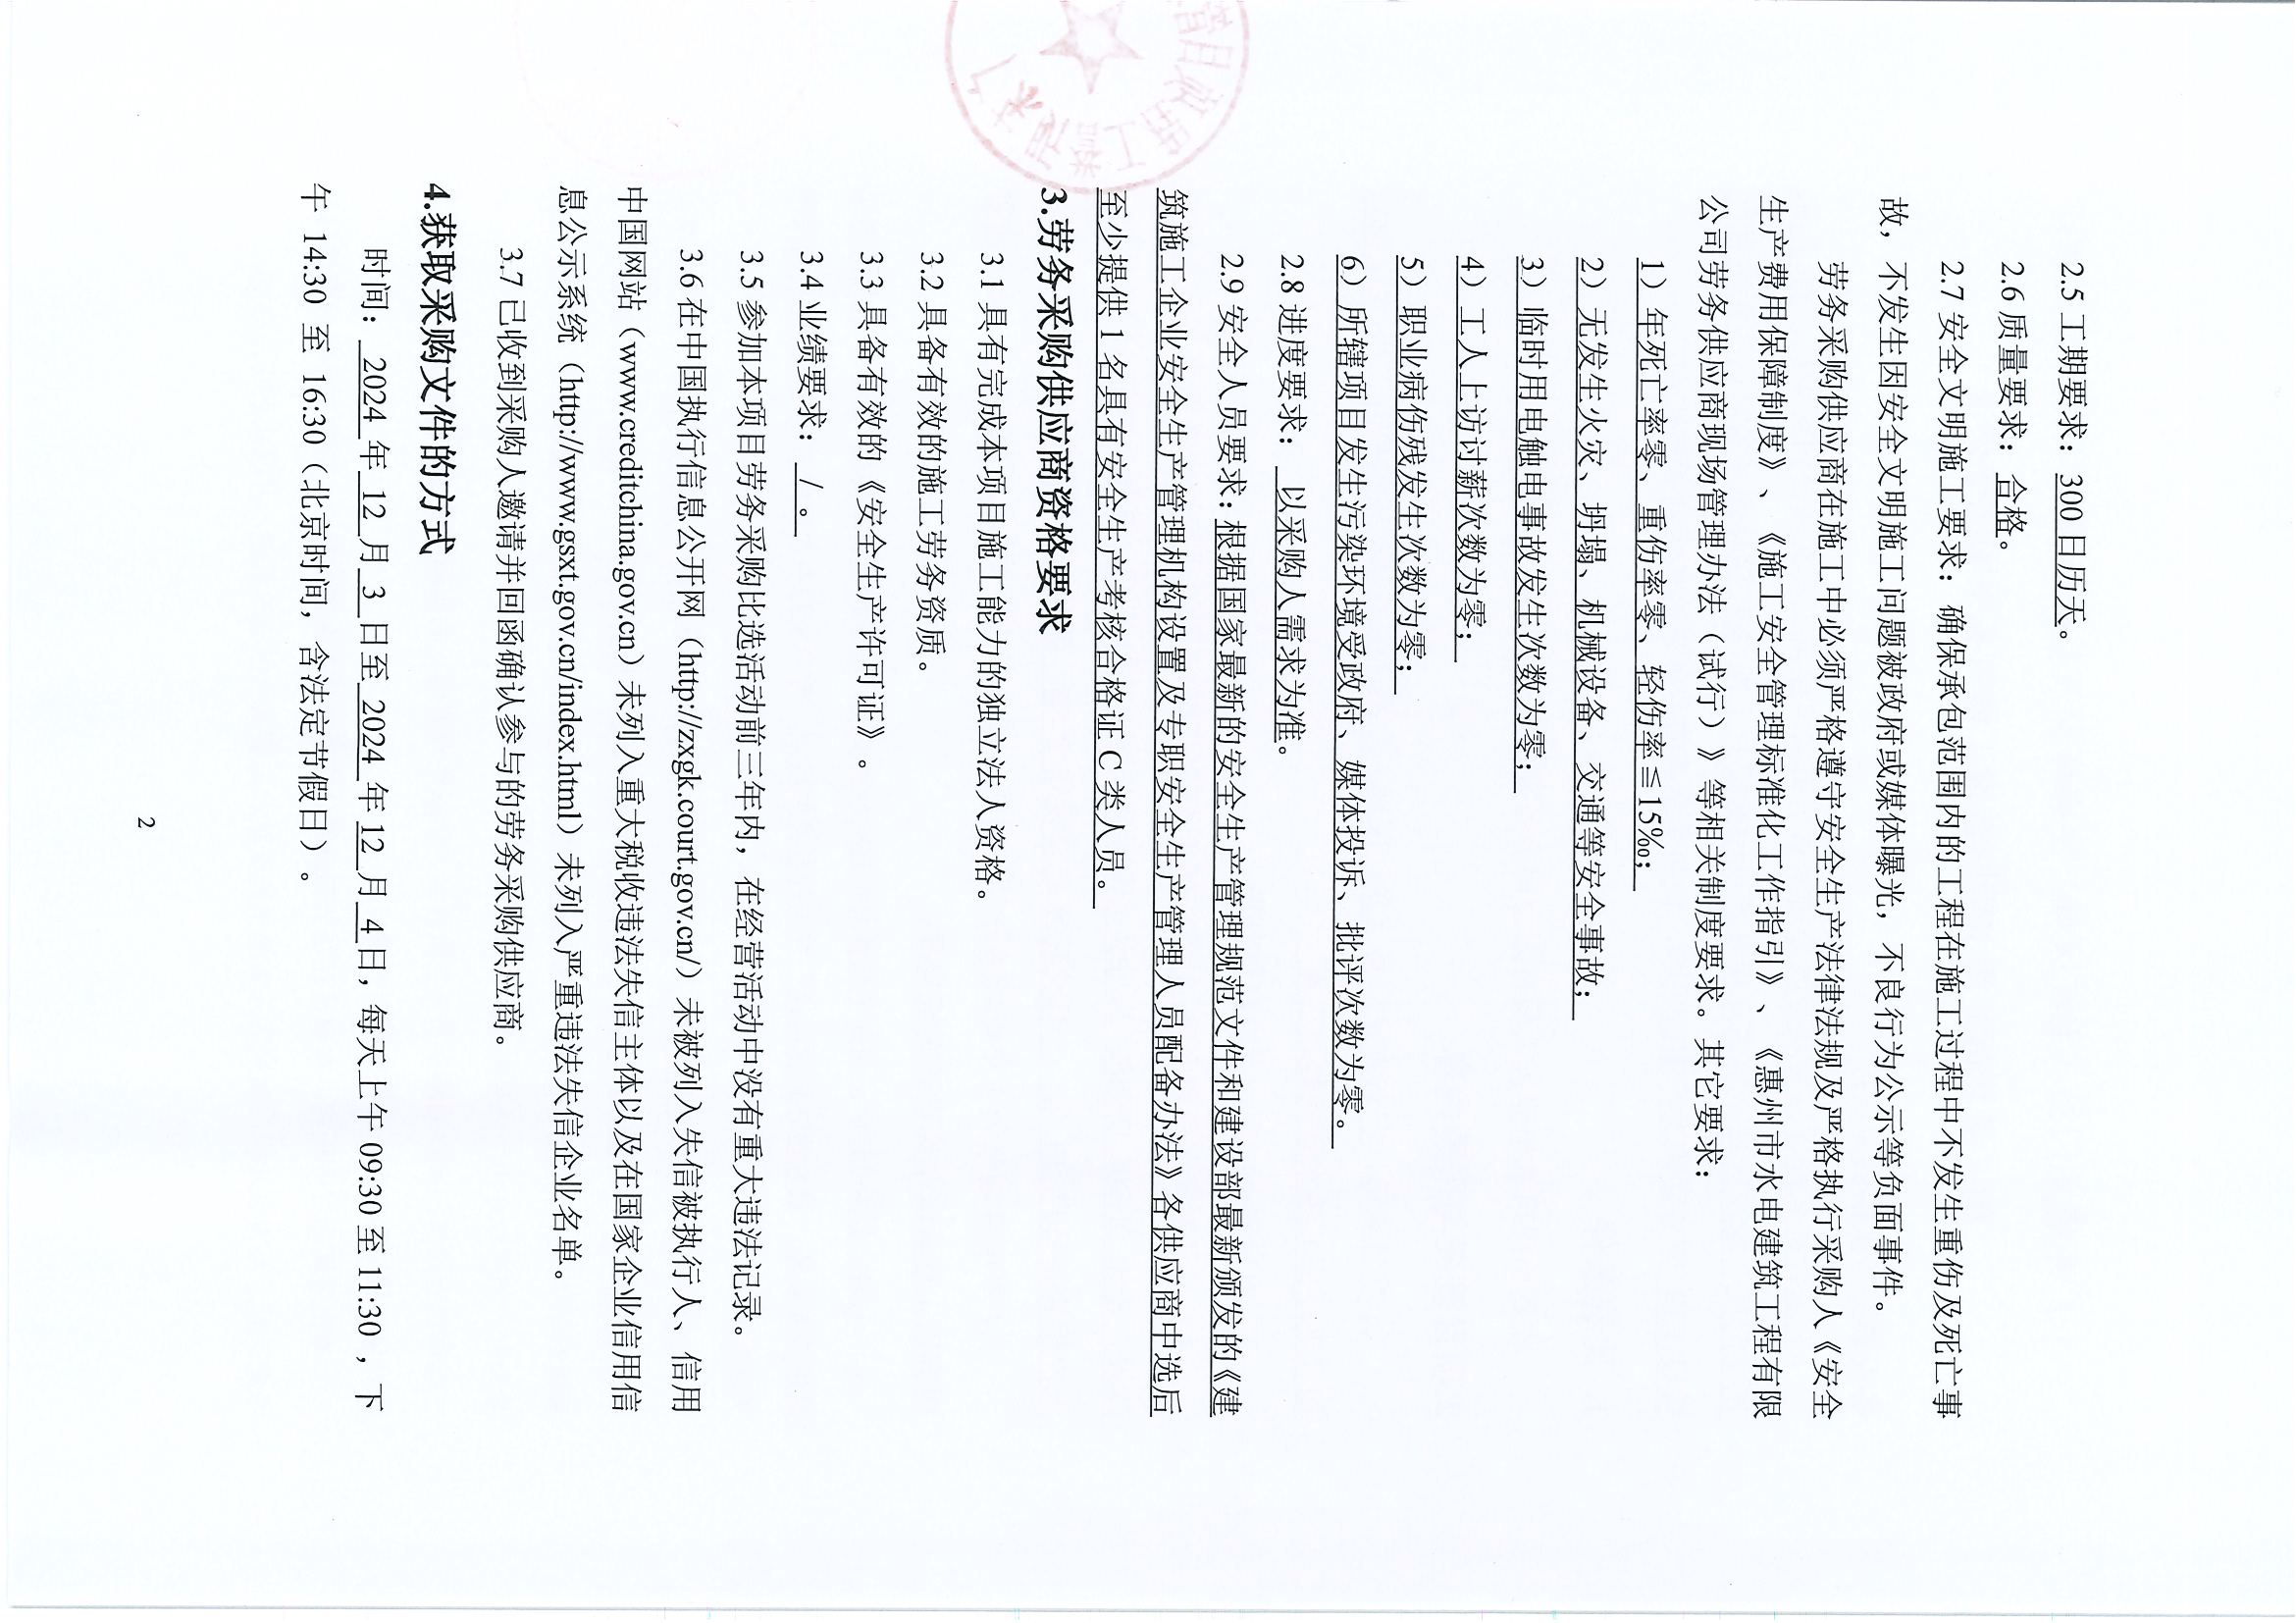 2.5 工期要求：300 日历天。
2.6 质量要求：合格。
2.7 安全文明施工要求：确保承包范围内的工程在施工过程中不发生重伤及死亡事
故，不发生因安全文明施工问题被政府或媒体曝光，不良行为公示等负面事件。
劳务采购供应商在施工中必须严格遵守安全生产法律法规及严格执行采购人《安全
生产费用保障制度》、《施工安全管理标准化工作指引》、《惠州市水电建筑工程有限
公司劳务供应商现场管理办法（试行）》等相关制度要求。其它要求：
1）年死亡率零、重伤率零、轻伤率≦15‰；
2）无发生火灾、坍塌、机械设备、交通等安全事故；
3）临时用电触电事故发生次数为零；
4）工人上访讨薪次数为零；
5）职业病伤残发生次数为零；
6）所辖项目发生污染环境受政府、媒体投诉、批评次数为零。
2.8 进度要求：以采购人需求为准。
2.9 安全人员要求：根据国家最新的安全生产管理规范文件和建设部最新颁发的《建
筑施工企业安全生产管理机构设置及专职安全生产管理人员配备办法》各供应商中选后
至少提供 1 名具有安全生产考核合格证 C 类人员。
3.劳务采购供应商资格要求
3.1 具有完成本项目施工能力的独立法人资格。
3.2 具备有效的施工劳务资质。
3.3 具备有效的《安全生产许可证》。
3.4 业绩要求： / 。
3.5 参加本项目劳务采购比选活动前三年内，在经营活动中没有重大违法记录。
3.6 在中国执行信息公开网（http://zxgk.court.gov.cn/）未被列入失信被执行人、信用
中国网站（www.creditchina.gov.cn）未列入重大税收违法失信主体以及在国家企业信用信
息公示系统（http://www.gsxt.gov.cn/index.html）未列入严重违法失信企业名单。
3.7 已收到采购人邀请并回函确认参与的劳务采购供应商。
4.获取采购文件的方式
时间： 2024 年 12 月 3 日至 2024 年 12 月 4 日，每天上午 09:30 至 11:30 ，下
午 14:30 至 16:30（北京时间，含法定节假日）。
2